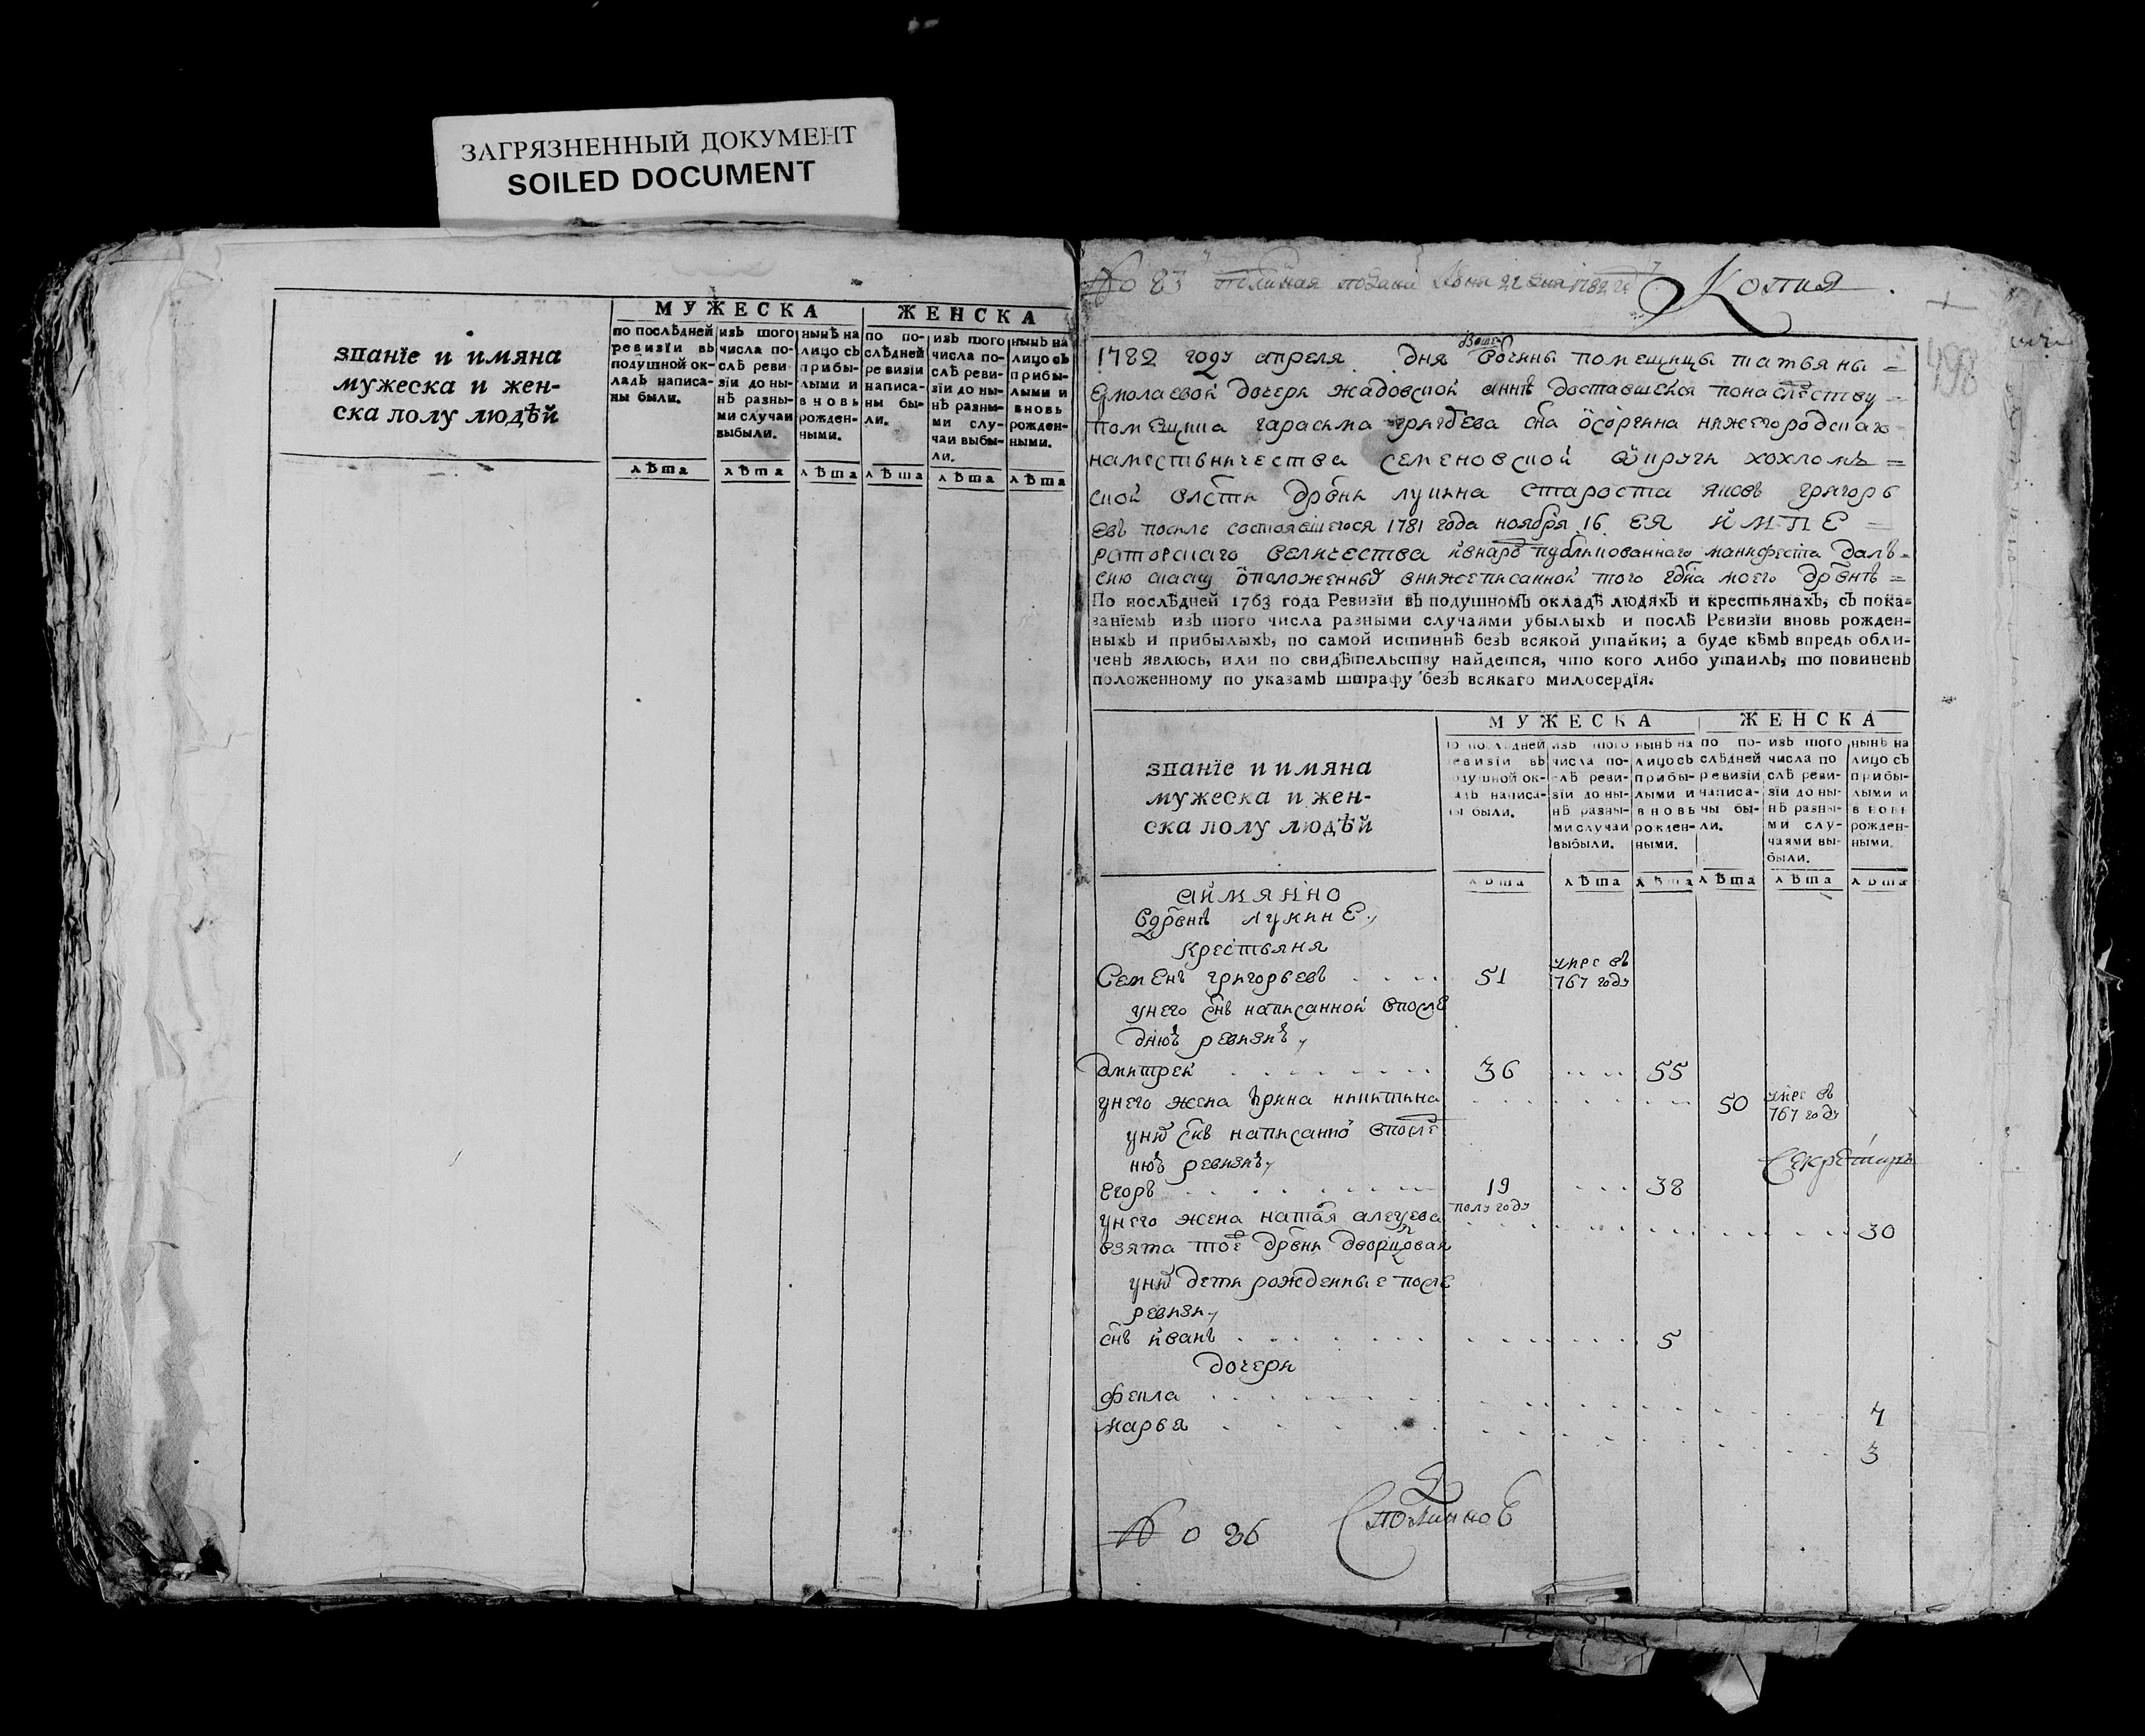 ЗАГРЯЗНЕННЫЙ ДОКУМЕНТ
SOILED DOCUMENT
МУЖЕСКА ЖЕНСКА
званїе и имяна
мужеска и жен-
ска полу людѣй
по послѣдней
ревизїи въ
подушной ок-
ладъ написа-
ны были.
изъ того
числа по-
слѣ реви-
зїи до ны-
нѣ разны-
ми случаи
выбыли.
нынѣ на
лицо съ
прибы-
лыми и
вновь
рожден-
ными.
по по-
слѣдней
ревизїи
написа-
ны бы-
ли.
изъ того
числа по-
слѣ реви-
зїи до ны-
нѣ разны-
ми слу-
чаи выбы-
ли.
нынѣ на
лицо съ
прибы-
лыми и
вновь
рожден-
ными.
лѣта лѣта лѣта лѣта лѣта лѣта
No 83
Копия.
498
1782 году апреля дня вочины помещицы татьяны
Ермолаевой дочери жадовской аннѣ доставшейся понаследству
помещика гарасима сна нижегородскаго
наместничества семеновской округи хохломъ
ской влсти дрвни лукина староста яковъ григорь
евъ после состоявшегося 1781 года ноября 16 ЕЯ ИМПЕ
раторскаго величества публикованнаго манифеста далъ
сию скаску оположенныхъ внижеписанной того гдна моего дрвнѣ
По послѣдней 1763 года Ревизїи въ подушномъ окладѣ людяхъ и крестьянахъ, съ пока-
занїемъ изъ того числа разными случаями убылыхъ и послѣ Ревизїи вновь рожден-
ныхъ и прибылыхъ, по самой истиннѣ безъ всякой утайки; а буде кѣмъ впредь обли-
ченъ явлюсь, или по свидѣтельству найдется, что кого либо утаилъ, то повиненъ
положенному по указамъ штрафу безъ всякаго милосердїя.
МУЖЕСКА ЖЕНСКА
званїе и имяна
мужеска и жен-
ска полу людѣй
по послѣдней
ревизїи въ
подушной ок-
ладъ написа-
ны были.
изъ того
числа по-
слѣ реви-
зїи до ны-
нѣ разны-
ми случаи
выбыли.
нынѣ на
лицо съ
прибы-
лыми и
вновь
рожден-
ными.
по по-
слѣдней
ревизїи
написа-
ны бы-
ли.
изъ того
числа по
слѣ реви-
зїи до ны-
нѣ разны-
ми слу-
чаями вы-
были.
нынѣ на
лицо съ
прибы-
лыми и
вновь
рожден-
ными.
лѣта лѣта лѣта лѣта лѣта лѣта
аймянно
вдрвнѣ лукинЕ
крестьяня
Семенъ григорьевъ 51 умре въ
767 году
унего снъ написанной впосле
днюю ревизию
дмитрей 36 55
унего жена ирина никитина 50 умре въ
767 году
уних снъ написанной впосле
нюю ревизию
Секретарь
егоръ 19 38
полу году
унего жена наталя алексеева 30
взята тое дрвни дворцовая
уних дети рожденные после
ревизи
снъ иванъ 5
дочери
фекла 7
марья 3
No 36